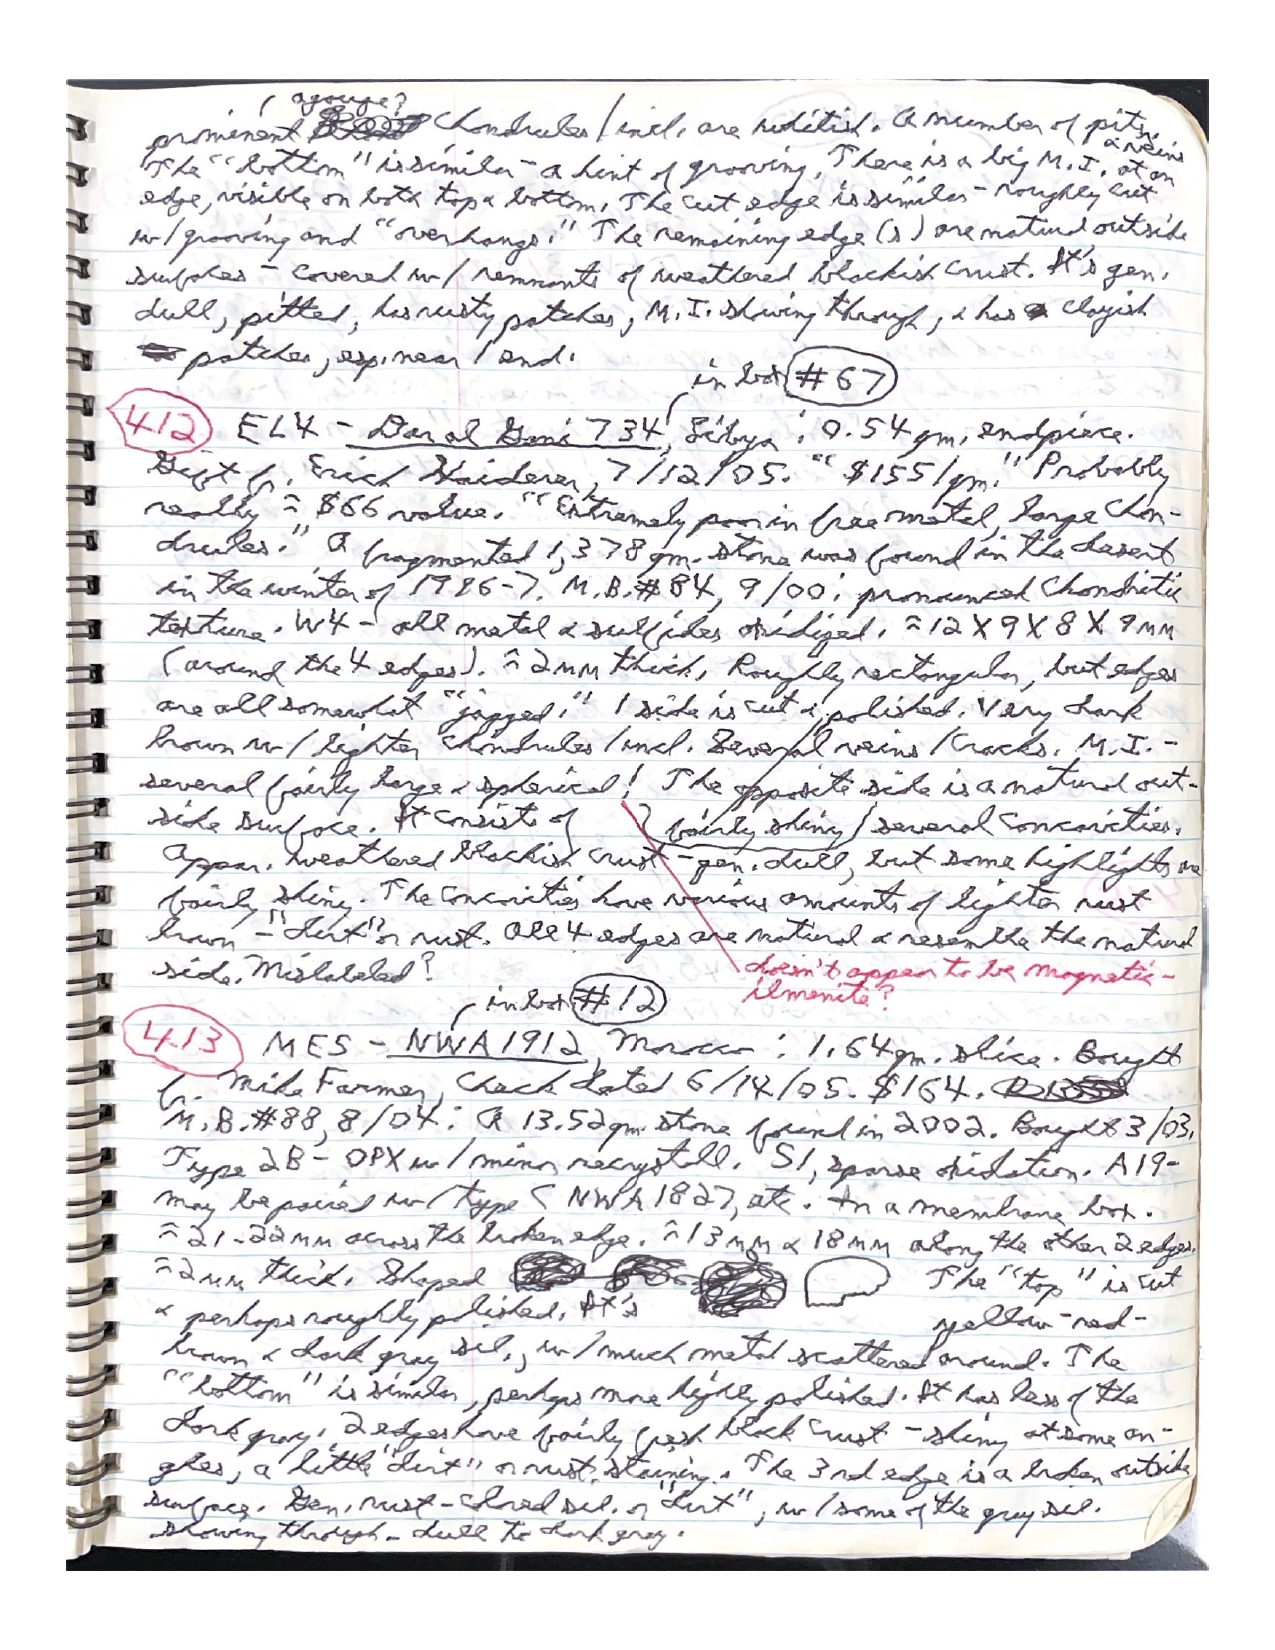 ( a gouge?
prominent chondrules/incl. are reddish. A number of pits
& veins
The "bottom" is similar - a hint of grooving. There is a big M.I. at an
edge, visible on both top & bottom. The cut edge is similar - roughly cut
w/ grooving and "overhangs." The remaining edge(s) are natural outside
surfaces - covered w/ remnants of weathered blackish crust. It's gen.
dull, pitted, has rusty patches, M.I. showing through, & has clayish
patches, esp. near 1 end.
in box #67
412 EL4 - Dar al Gani 734, Libya: 0.54 gm. endpiece.
Gift fr. Erich Haiderer, 7/12/05. "$155/gm." Probably
really ≈ $66 value. "Extremely poor in free metal, large chon-
drules." A fragmented 1,378 gm. stone was found in the desert
in the winter of 1996-7. M.B.#84, 9/00: pronounced chondritic
texture. W4 - all metal & sulfides oxidized. ≈12 X 9 X 8 X 9 mm
(around the 4 edges). ≈2mm thick. Roughly rectangular, but edges
are all somewhat "jagged." 1 side is cut & polished. Very dark
brown w/ lighter chondrules/incl. Several veins/cracks. M.I. -
several fairly large & spherical! The opposite side is a natural out-
side surface. It consists of fairly shiny / several concavities.
Appar. weathered blackish crust - gen. dull, but some highlights are
fairly shiny. The concavities have various amounts of lighter rust
brown - "dirt" or rust. All 4 edges are natural & resemble the natural
side. Mislabeled?
doesn't appear to be magnetic -
ilmenite?
in box #12
413 MES - NWA 1912, Morocco: 1.64 gm. slice. Bought
fr. Mike Farmer, check dated 6/14/05. $164.
M.B.#88, 8/04: A 13.52 gm. stone found in 2002. Bought 3/03.
Type 2B - OPX w/ minor recrystall. S1, sparse oxidation. A19-
may be paired w/ type C NWA 1827, etc. In a membrane box.
≈21-22mm across the broken edge. ≈13mm & 18mm along the other 2 edges.
≈2mm thick. Shaped The "top" is cut
& perhaps roughly polished. It's yellow-red-
brown & dark gray sil., w/ much metal scattered around. The
"bottom" is similar, perhaps more highly polished. It has less of the
dark gray. 2 edges have fairly fresh black crust - shiny at some an-
gles, a little "dirt" or rust staining. The 3rd edge is a broken outside
surface. Gen. rust-colored sil. or "dirt", w/ some of the gray sil.
showing through - dull to dark gray.